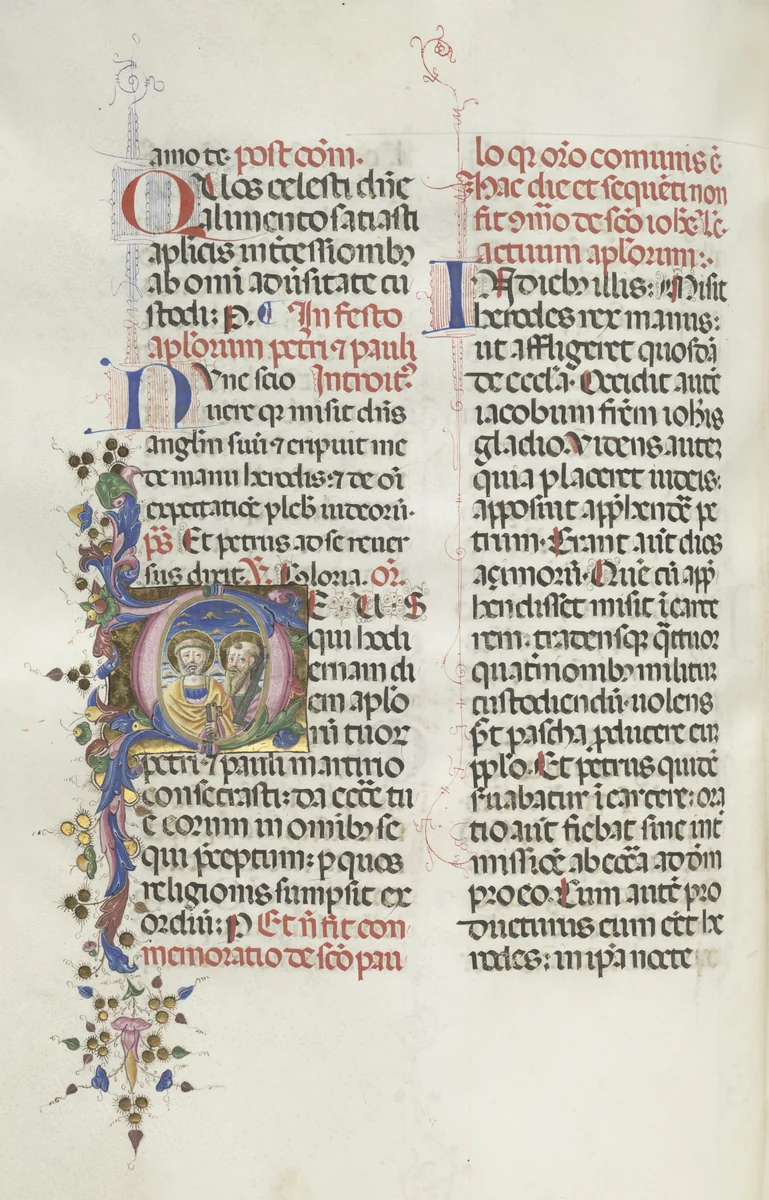 amo te. post com̄.
Quos celesti dn̄e
alimento satiasti
aplicis int̄cessionibꝫ
ab om̄i aduersitate cu
stodi: p. ¶ In festo
apl'orum petri ⁊ pauli
Nunc scio Introit9
uere qꝛ misit dn̄s
angl'm suū ⁊ eripuit me
de manu herodis: ⁊ de oī
expectatiōe pleb' iudeorū.
ps̄ Et petrus ad se reuer
sus dixit. V. Gloria. or̄.
DEUS
qui hodi
ernam di
em aplo
rū tuoꝝ
petri ⁊ pauli martirio
consecrasti: da eccē tu
e eorum in omībꝫ se
qui p̄ceptum: p quos
religionis sumpsit ex
ordiū: p Et n̄ fit com
memoratio de sc̄o pau
lo qꝛ or̄o comunis ē.
Hac die et sequēti non
fit 9mō de sc̄o ioh̄e. Le.
actuum apl'orum:.
IN diebꝫ illis: Misit
herodes rex manus:
ut affligeret quosdā
de eccl'a. Occidit autē
iacobum frēm ioh̄is
gladio. Videns autez
quia placeret iudeis:
apposuit app̄hendē̄ pe
trum. Erant aūt dies
açimorū. Quē cū app̄
hendisset misit ī carce
rem. tradens qͣttuor
quat̄nionibꝫ militū
custodiendū. uolens
p̄t pascha ꝓducere eū
pp̄lo. Et petrus quidē
s̄uabatur ī carcere: ora
tio aūt fiebat sine int̄
missiōe ab eccā ad dm̄
pro eo. Cum autē pro
ducturus eum eēt he
rodes: in ip̄a nocte